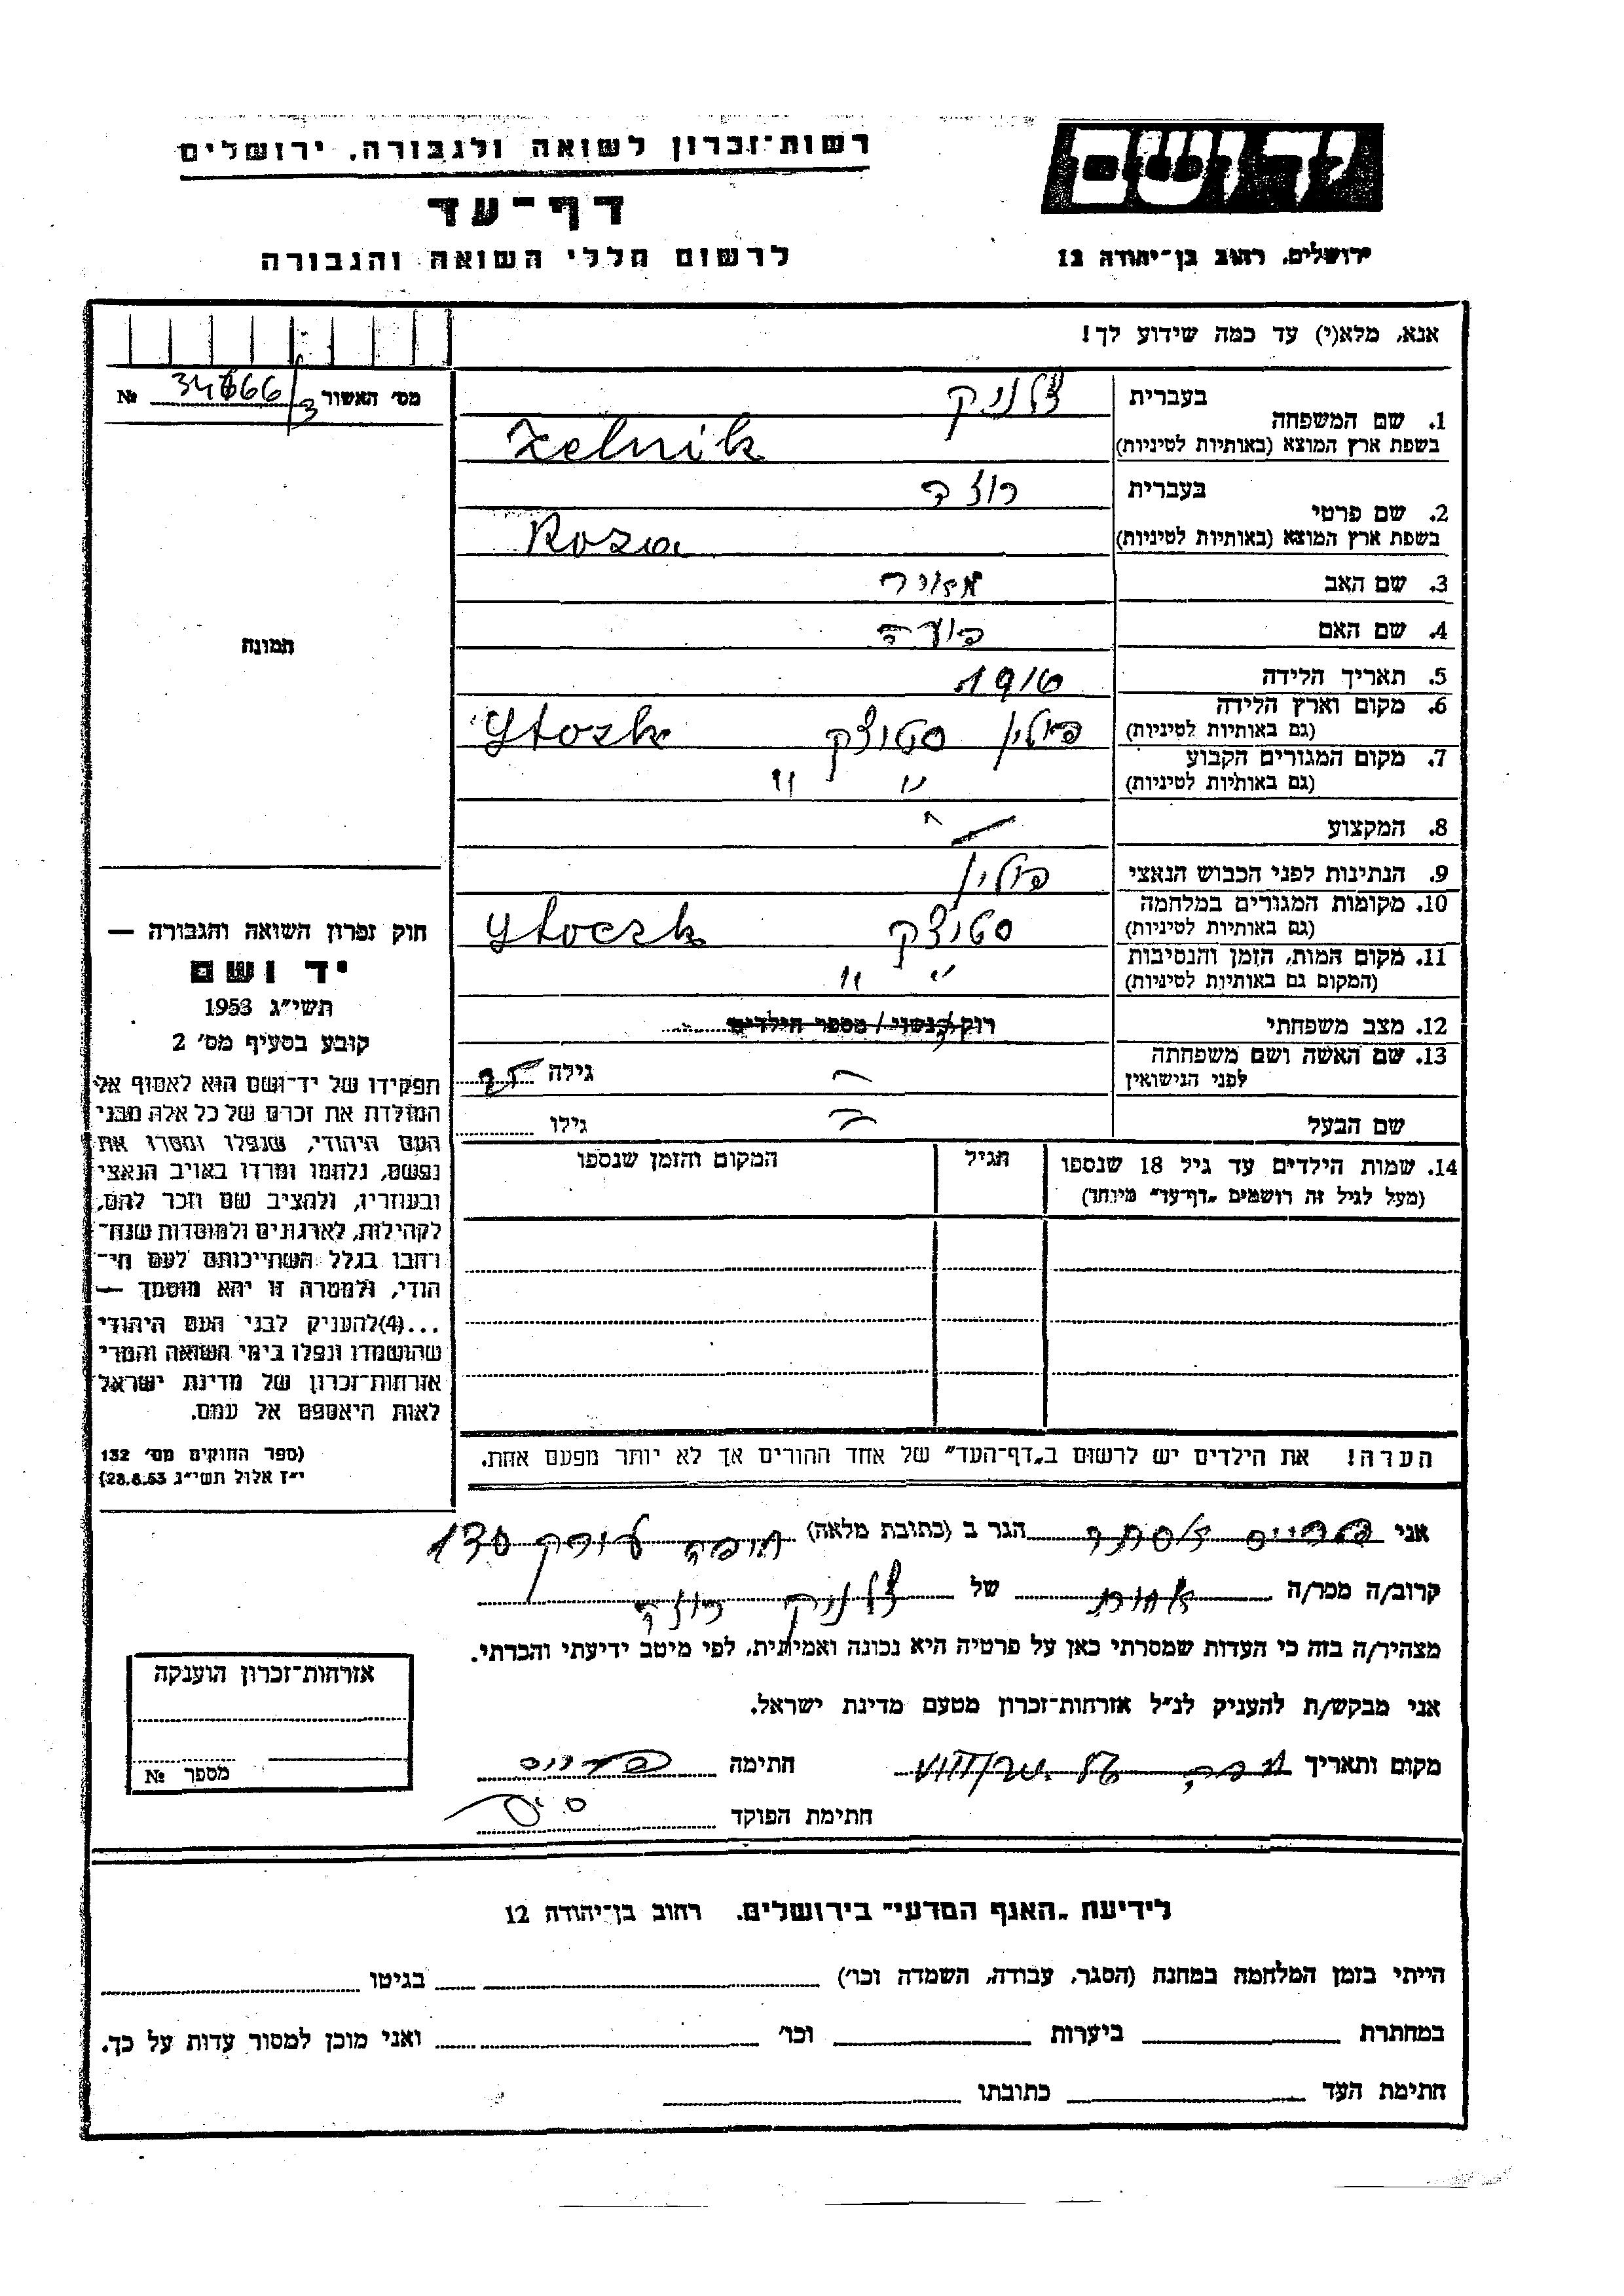 רשות־זכרון לשואה ולגבורה, ירושלים
יד ושם
דף־עד
לרשום חללי השואה והגבורה
ירושלים, רחוב בן־יהודה 12
אנא, מלא(י) עד כמה שידוע לך!
מס' האשור № /3
1. שם המשפחה בעברית צלניק
בשפת ארץ המוצא (באותיות לטיניות) Zelnik
2. שם פרטי בעברית רוזה
בשפת ארץ המוצא (באותיות לטיניות) Roza
3. שם האב מאיר
4. שם האם
5. תאריך הלידה
6. מקום וארץ הלידה פולין סטוצק
(גם באותיות לטיניות) Ytozk
7. מקום המגורים הקבוע " "
(גם באותיות לטיניות)
8. המקצוע
9. הנתינות לפני הכבוש הנאצי פולין
10. מקומות המגורים במלחמה סטוצק
(גם באותיות לטיניות) Ytoczk
11. מקום המות, הזמן והנסיבות " "
(המקום גם באותיות לטיניות)
12. מצב משפחתי רוק/ה נשוי/ מספר הילדים
13. שם האשה ושם משפחתה לפני הנישואין גילה
שם הבעל גילו
14. שמות הילדים עד גיל 18 שנספו
(מעל לגיל זה רושמים "דף־עד" מיוחד)
הגיל
המקום והזמן שנספו
הערה! את הילדים יש לרשום ב"דף־העד" של אחד ההורים אך לא יותר מפעם אחת.
תמונה
חוק זכרון השואה והגבורה —
יד ושם
תשי"ג 1953
קובע בסעיף מס' 2
תפקידו של יד־ושם הוא לאסוף אל
המולדת את זכרם של כל אלה מבני
העם היהודי, שנפלו ומסרו את
נפשם, נלחמו ומרדו באויב הנאצי
ובעוזריו, ולהציב שם וזכר להם,
לקהילות, לארגונים ולמוסדות שנח־
רבו בגלל השתייכותם לעם הי־
הודי, ולמטרה זו יהא מוסמך —
...(4)להעניק לבני העם היהודי
שהושמדו ונפלו בימי השואה והמרי
אזרחות־זכרון של מדינת ישראל
לאות היאספם אל עמם.
(ספר החוקים מס' 132
י"ז אלול תשי"ג 28.8.53)
אני אסתר הגר ב (כתובת מלאה) חיפה
קרוב/ה מכר/ה אחות של צלניק רוזה
מצהיר/ה בזה כי העדות שמסרתי כאן על פרטיה היא נכונה ואמיתית, לפי מיטב ידיעתי והכרתי.
אני מבקש/ת להעניק לנ"ל אזרחות־זכרון מטעם מדינת ישראל.
מקום ותאריך חיפה חתימה
חתימת הפוקד
אזרחות־זכרון הוענקה
מספר №
לידיעת "האגף המדעי" בירושלים, רחוב בן־יהודה 12
הייתי בזמן המלחמה במחנה (הסגר, עבודה, השמדה וכו') בגיטו
במחתרת ביערות וכו' ואני מוכן למסור עדות על כך.
חתימת העד כתובתו